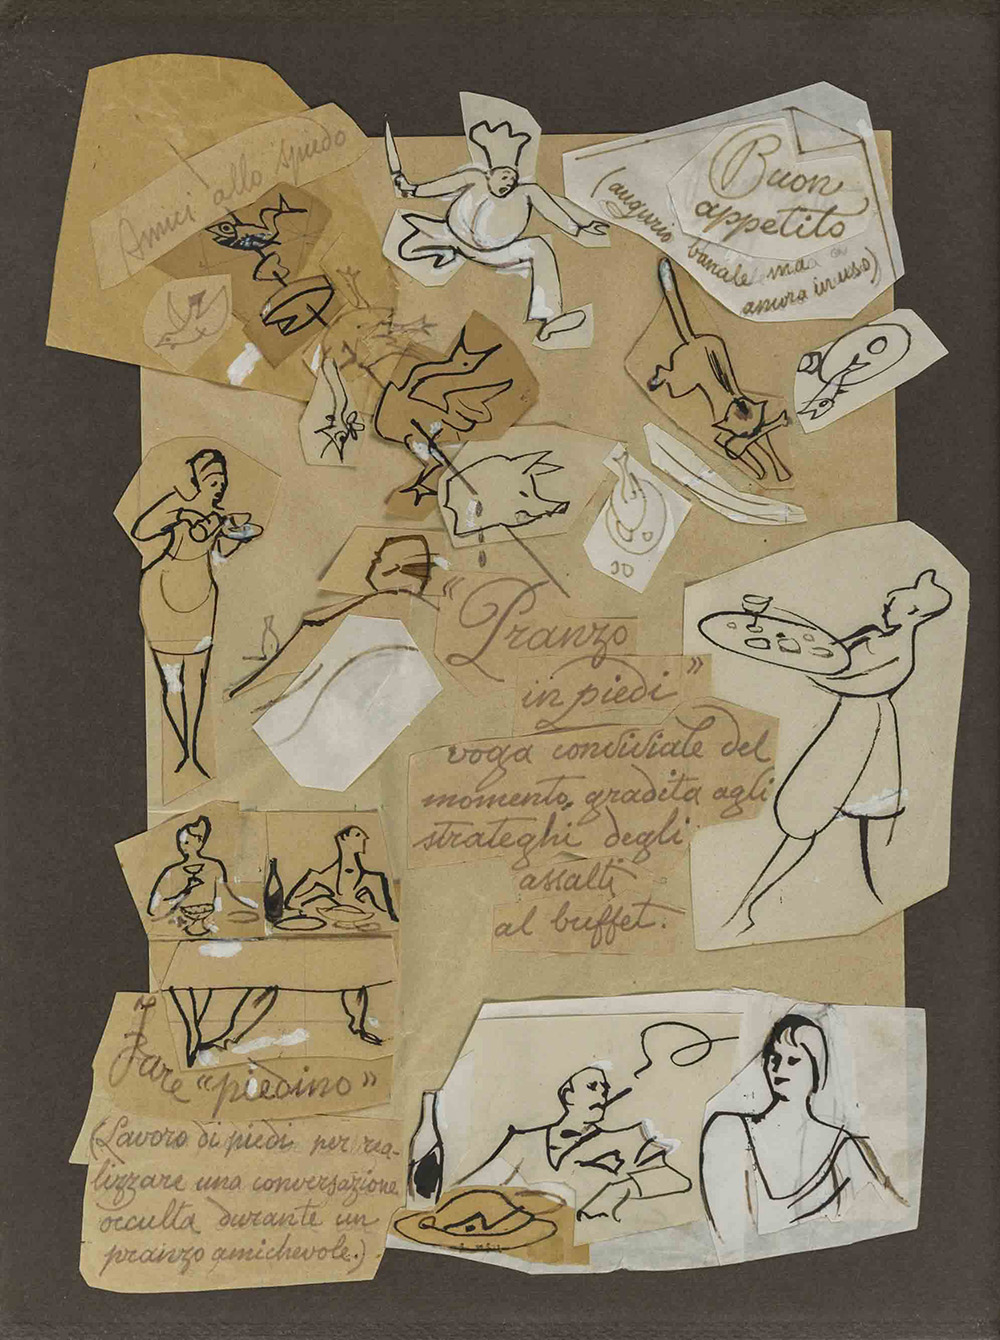 Amici allo spiedo
Buon
appetito
(augurio banale ma
ancora in uso)
"Pranzo
in piedi"
voga conviviale del
momento, gradita agli
strateghi degli
assalti
al buffet.
Fare "piedino"
(Lavoro di piedi per rea-
lizzare una conversazione
occulta durante un
pranzo amichevole.)